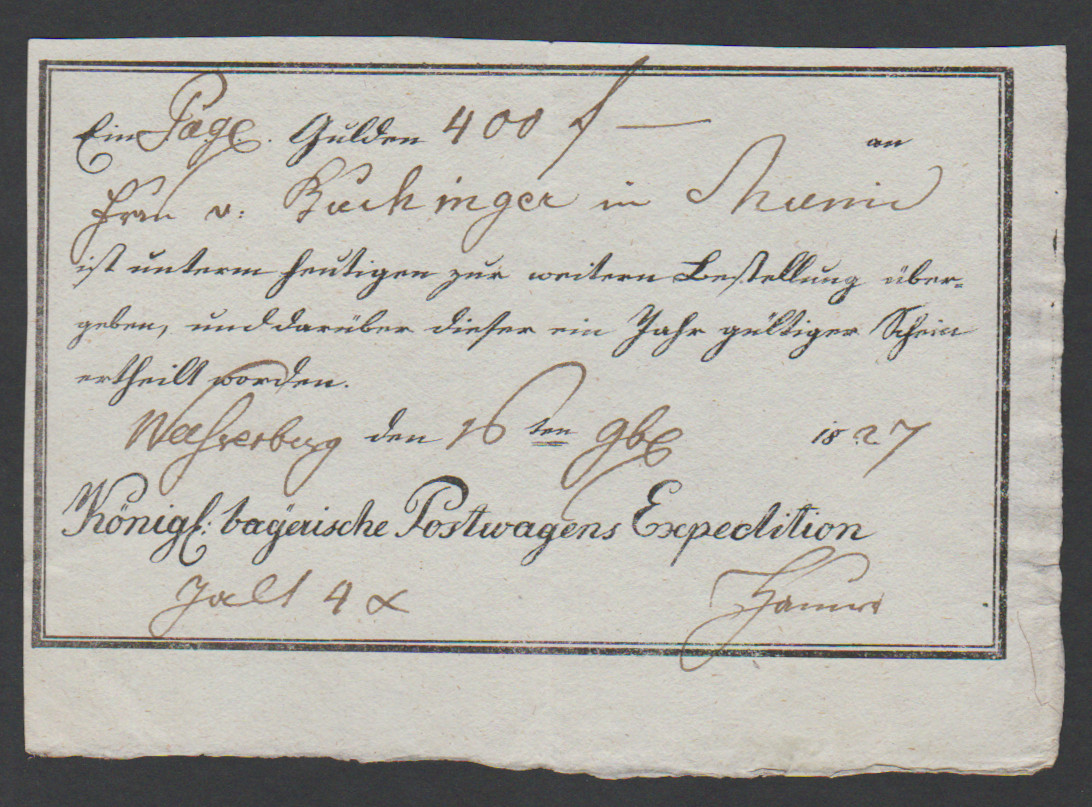 Ein Page. Gulden 400 f — an
Frau v: Buchinger in
ist unterm heutigen zur weitern Bestellung über-
geben, und darüber dieser ein Jahr gültiger Schein
ertheilt worden.
Wasserburg den 16ten 9br 1827
Königl: bayerische Postwagens Expedition
4 x